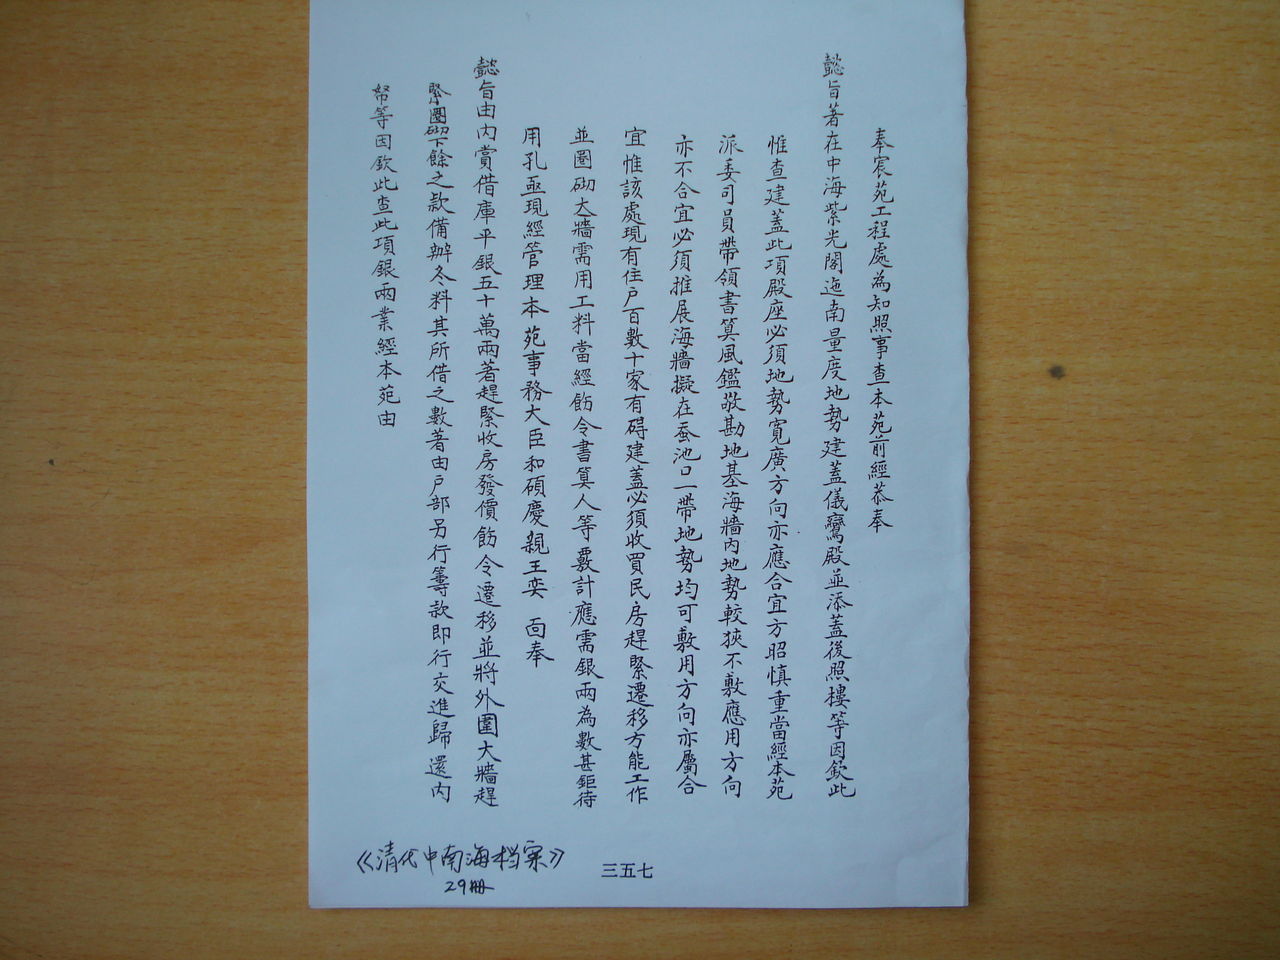 奉宸苑工程處為知照事查本苑前經恭奉
懿旨著在中海紫光閣迤南量度地勢建蓋儀鸞殿並添蓋後照樓等因欽此
惟查建蓋此項殿座必須地勢寬廣方向亦應合宜方昭慎重當經本苑
派委司員帶領書算風鑑敬勘地基海牆內地勢較狹不敷應用方向
亦不合宜必須推展海牆擬在蚕池口一帶地勢均可敷用方向亦屬合
宜惟該處現有住戶百數十家有碍建蓋必須收買民房趕緊遷移方能工作
並圈砌大牆需用工料當經飭令書算人等覈計應需銀兩為數甚鉅待
用孔亟現經管理本苑事務大臣和碩慶親王奕 面奉
懿旨由內賞借庫平銀五十萬兩著趕緊收房發價飭令遷移並將外圍大牆趕
緊圈砌下餘之款備辦冬料其所借之數著由戶部另行籌款即行交進歸還內
帑等因欽此查此項銀兩業經本苑由
《清代中南海档案》
29冊
三五七